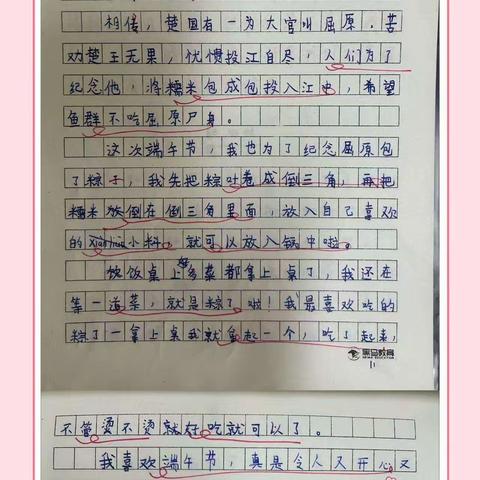 相传，楚国有一为大官叫屈原．苦
劝楚王无果，忧愤投江自尽，人们为了
纪念他，将糯米包成包投入江中，希望
鱼群不吃屈原尸身。
这次端午节，我也为了纪念屈原包
了粽子，我先把粽叶卷成倒三角，再把
糯米放倒在倒三角里面，放入自己喜欢
的小料。就可以放入锅中啦。
饮饭桌上多菜都拿上桌了，我还在
等一道菜，就是粽了啦！我最喜欢吃的
粽了一拿上桌我就拿起一个，吃了起来，
黑马教育
11
不管烫不烫就好吃就可以了。
我喜欢端午节，真是令人又开心又